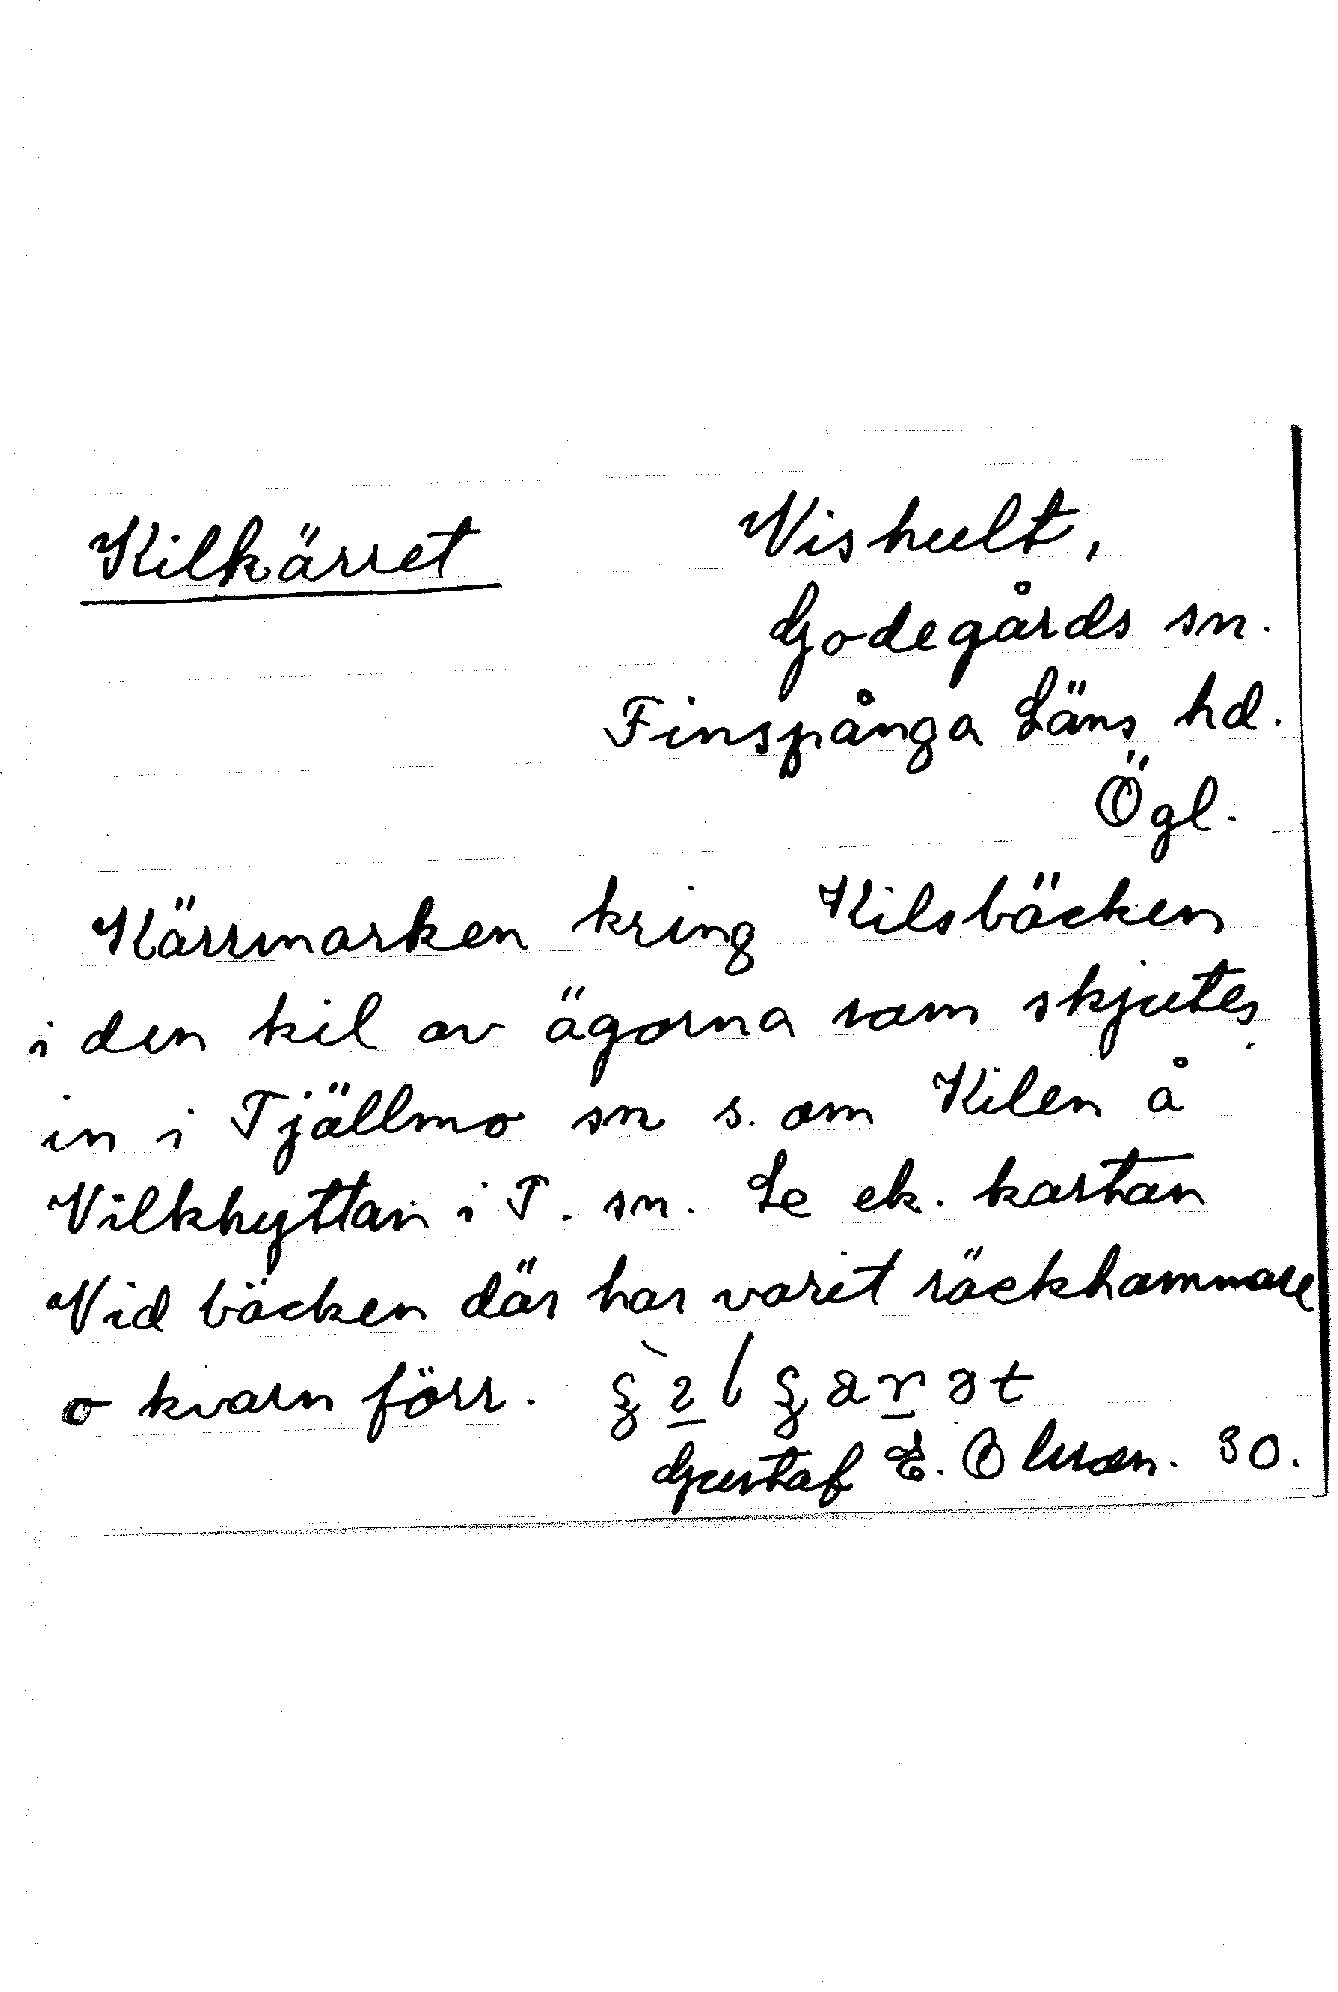 Kilkärret
Vishult,
Godegårds sn.
Finspånga Läns hd.
Ögl.
Kärrmarken kring Kilsbäcken
i den kil av ägorna som skjutes
in i Tjällmo sn s. om Kilen å
Vilkhyttan i T. sn. Se ek. kartan
Vid bäcken där har varit räckhammare
o kvarn förr.
Gustaf E. Olsson. 30.